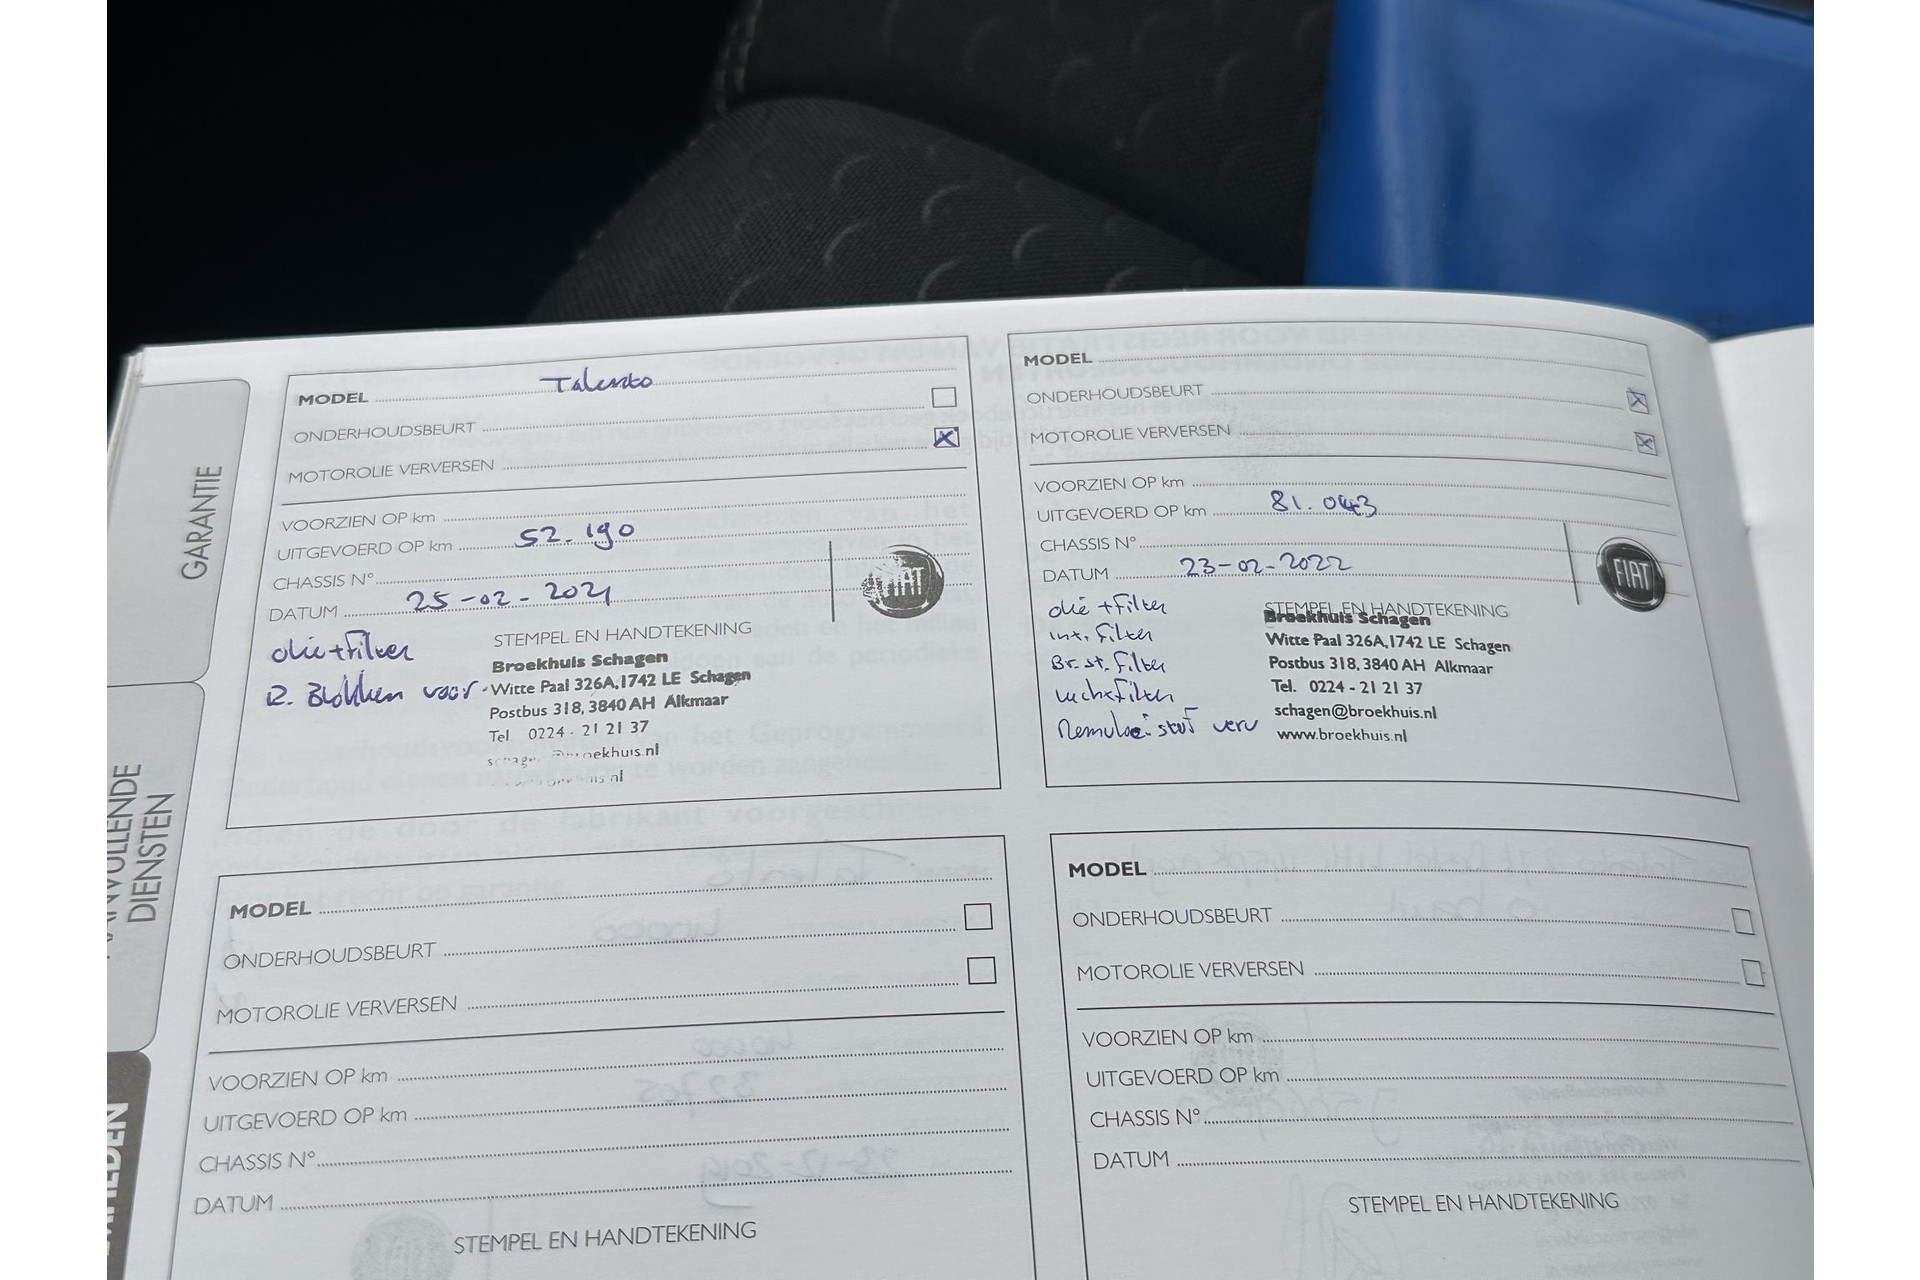 GARANTIE
DIENSTEN
MODEL Talento
ONDERHOUDSBEURT
MOTOROLIE VERVERSEN
VOORZIEN OP km
UITGEVOERD OP km 52.190
CHASSIS N°
DATUM 25-02-2021
FIAT
olie+filter
R. Blokken voor
STEMPEL EN HANDTEKENING
Broekhuis Schagen
Witte Paal 326A,1742 LE Schagen
Postbus 318, 3840 AH Alkmaar
Tel 0224 - 21 21 37
MODEL
ONDERHOUDSBEURT
MOTOROLIE VERVERSEN
VOORZIEN OP km
UITGEVOERD OP km 81.043
CHASSIS N°
DATUM 23-02-2022
FIAT
olie+filter
int. filter
Br.st. filter
luchtfilter
Remvloeistof verv
STEMPEL EN HANDTEKENING
Broekhuis Schagen
Witte Paal 326A,1742 LE Schagen
Postbus 318, 3840 AH Alkmaar
Tel. 0224 - 21 21 37
schagen@broekhuis.nl
www.broekhuis.nl
MODEL
ONDERHOUDSBEURT
MOTOROLIE VERVERSEN
VOORZIEN OP km
UITGEVOERD OP km
CHASSIS N°
DATUM
STEMPEL EN HANDTEKENING
MODEL
ONDERHOUDSBEURT
MOTOROLIE VERVERSEN
VOORZIEN OP km
UITGEVOERD OP km
CHASSIS N°
DATUM
STEMPEL EN HANDTEKENING